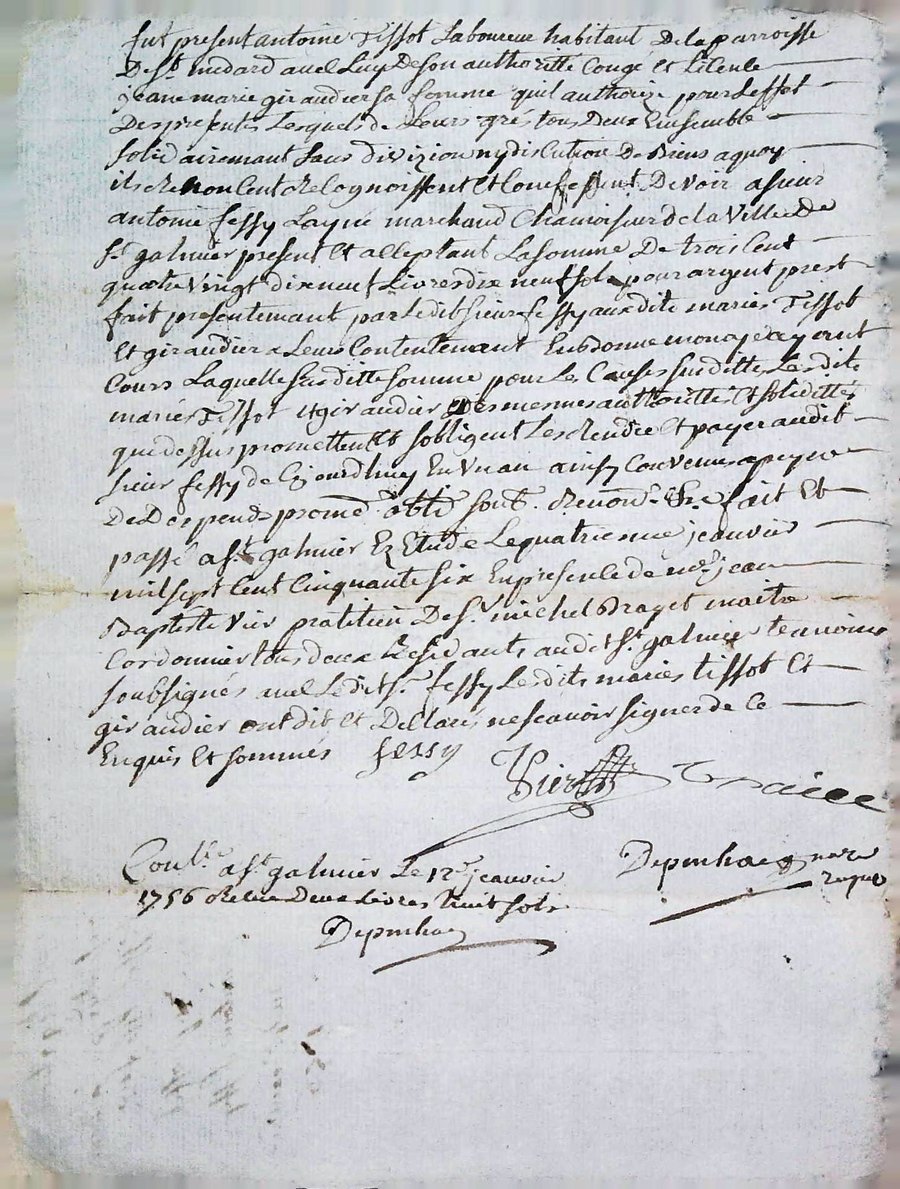 fut present antoine Tissot Laboureur habitant De la parroisse
De st. medard avec Luy De son authoritte Congé et Licence
jeane marie giraudier sa femme quil authorize pour Leffet
Des presentes Lesquels de Leurs grés tous Deux Ensemble
solidairemant sans divizion ny discution De Biens a quoy
ils Renoncent Recognoissent Et Confessent Devoir a sieur
antoine fessy Layné marchand Chamoiseur de la Ville De
st. galmier present Et acceptant La somme De trois Cent
quatre vingt dix neuf Livres dix neuf sols pour argent prest
fait presentemant par Ledit sieur fessy aux dits mariés Tissot
Et giraudier a Leur Contentemant En bonne monoye ayant
Cours Laquelle susditte somme pour Les Causes susdittes Lesdits
mariés Tissot et giraudier Des mesmes authorittés Et solidittés
que dessus promettent Et sobligent Les Rendre Et payer audit
sieur fessy de Cejourdhuy En un an ainsy Convenu a peyne
De Despends prome. oblig. soub. Renon. fait Et
passé a st. galmier Ez Etude Le quatrieme jeanvier
mil sept Cent Cinquante six En presence de me. jean
Baptiste Vier pratitien De sr. michel Draget maitre
Cordonnier tous deux Residants audit st. galmier temoins
soubsignés avec Ledit sr. fessy Lesdits mariés tissot Et
giraudier ont dit Et Declaré ne scavoir signer de Ce
Enquis Et sommés fessy
Vier
Conlle. a st. galmier Le 12e. jeanvier
1756 Recu Deux Livres huit sols